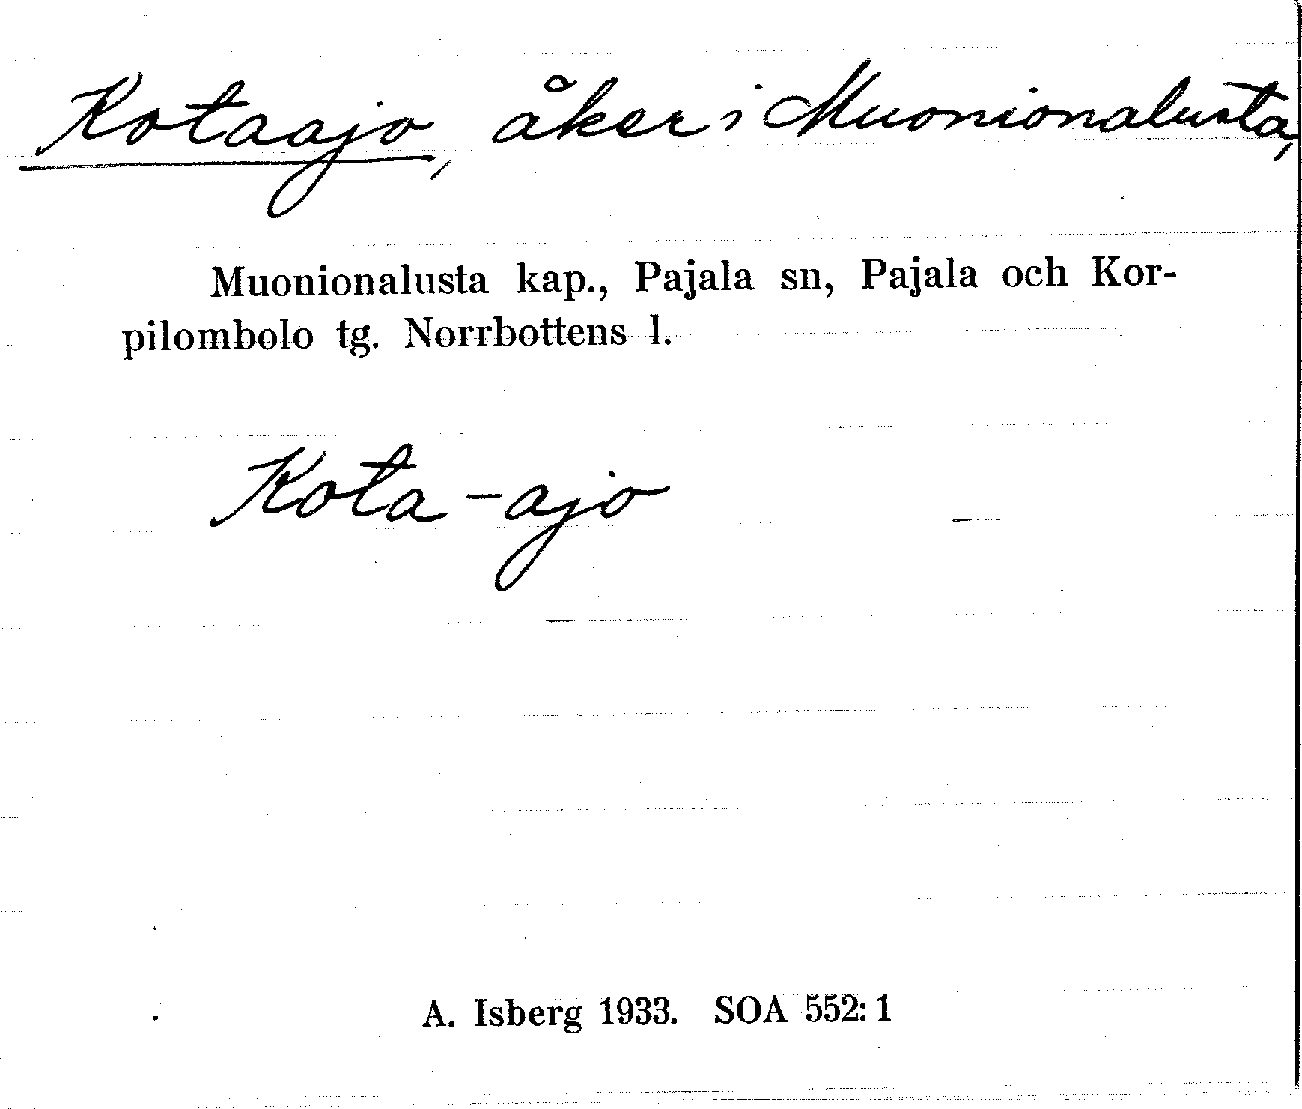 Kotaajo, åker i Muonionalusta,
Muonionalusta kap., Pajala sn, Pajala och Kor-
pilombolo tg. Norrbottens l.
Kota-ajo
A. Isberg 1933. SOA 552:1